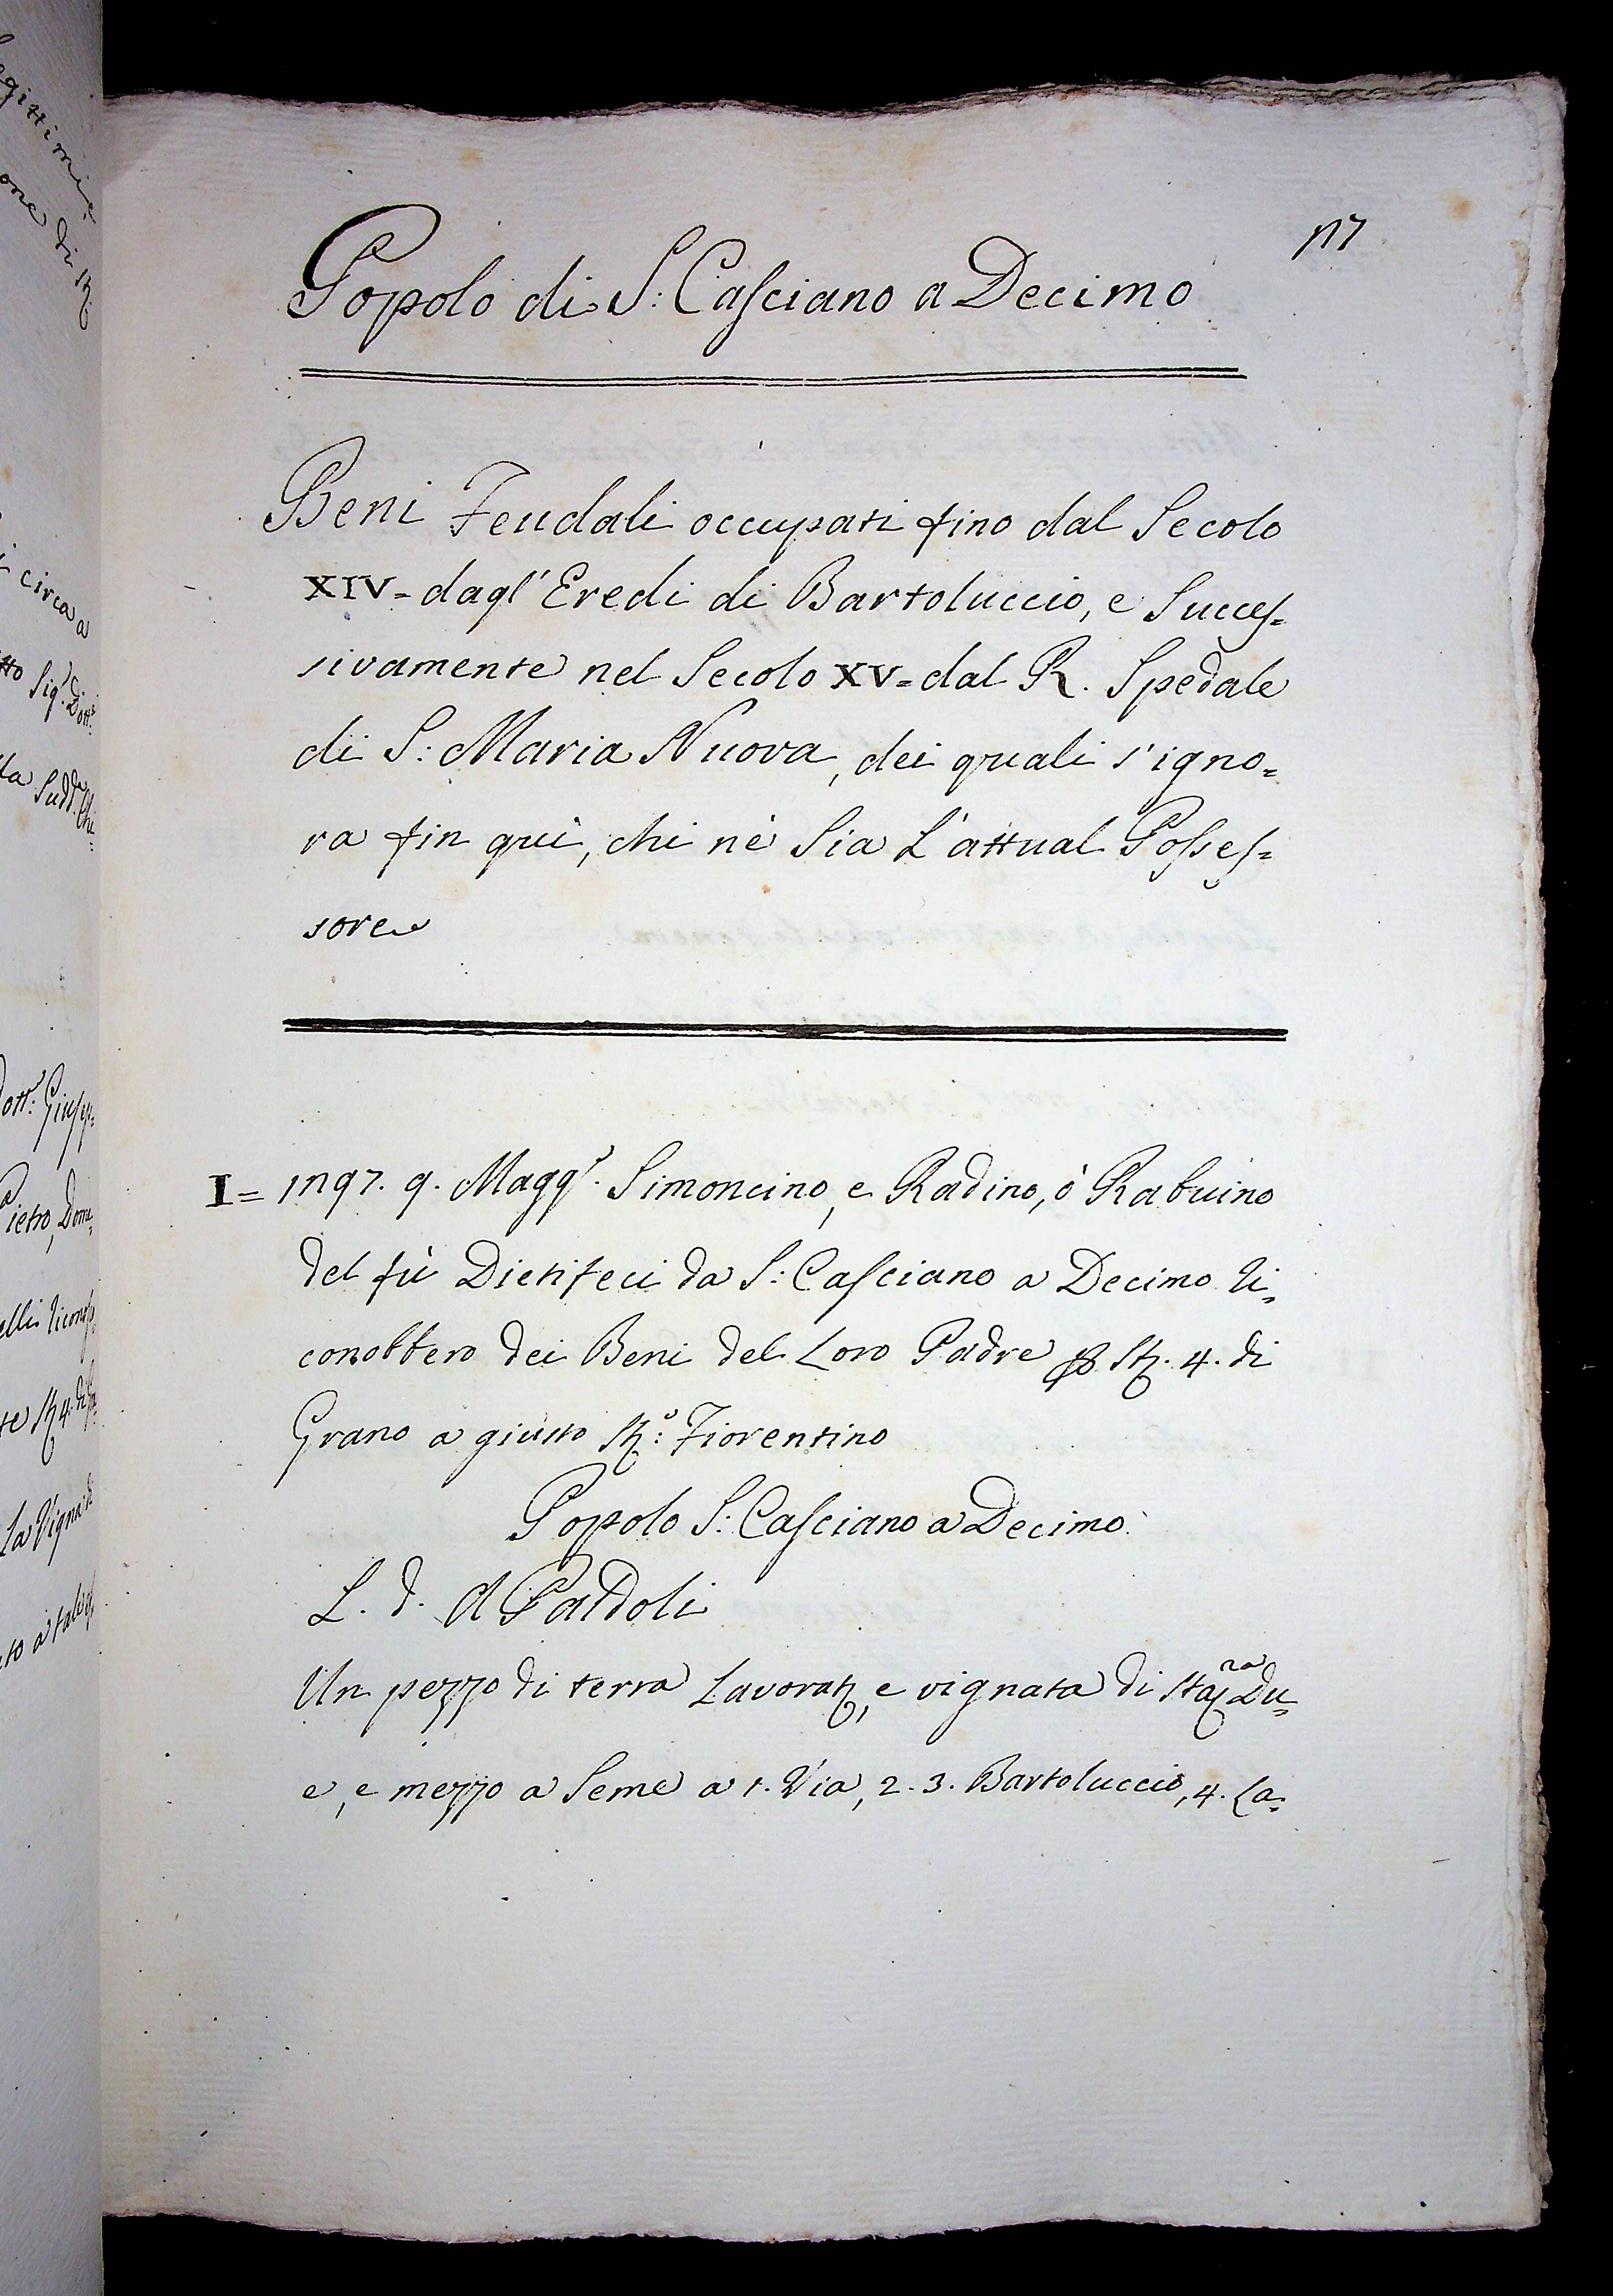 117
Popolo di S: Casciano a Decimo
Beni Feudali occupati fino dal Secolo
XIV= dagl' Eredi di Bartoluccio, e Succes=
sivamente nel Secolo XV= dal R. Spedale
di S: Maria Nuova, dei quali s'igno=
ra fin quì, chi nè Sia L'attual Posses=
sore
I= 1297. 9. Magg.º Simoncino, e Radino, ò Rabuino
del fù Dietifeci da S: Casciano a Decimo ri=
conobbero dei Beni del Loro Padre p St. 4. di
Grano a giusto St.º: Fiorentino
Popolo S: Casciano a Decimo
L. d. a Paldoli
Un pezzo di terra Lavorat, e vignata di Sta.ra Du=
e, e mezzo a Seme a 1. Via, 2. 3. Bartoluccio, 4. La=
circa a
Sig.
Dott.
Sudd.
Dott.: Giusep=
ietro, Dom=
La Vigna di